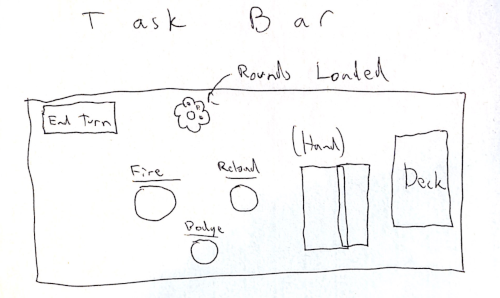 Task Bar
Rounds Loaded
End Turn
(Hand)
Fire
Reload
Deck
Dodge